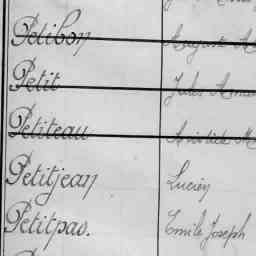 Petibon Auguste
Petit Jules
Petiteau Aristide
Petitjean Lucien
Petitpas. Emile Joseph